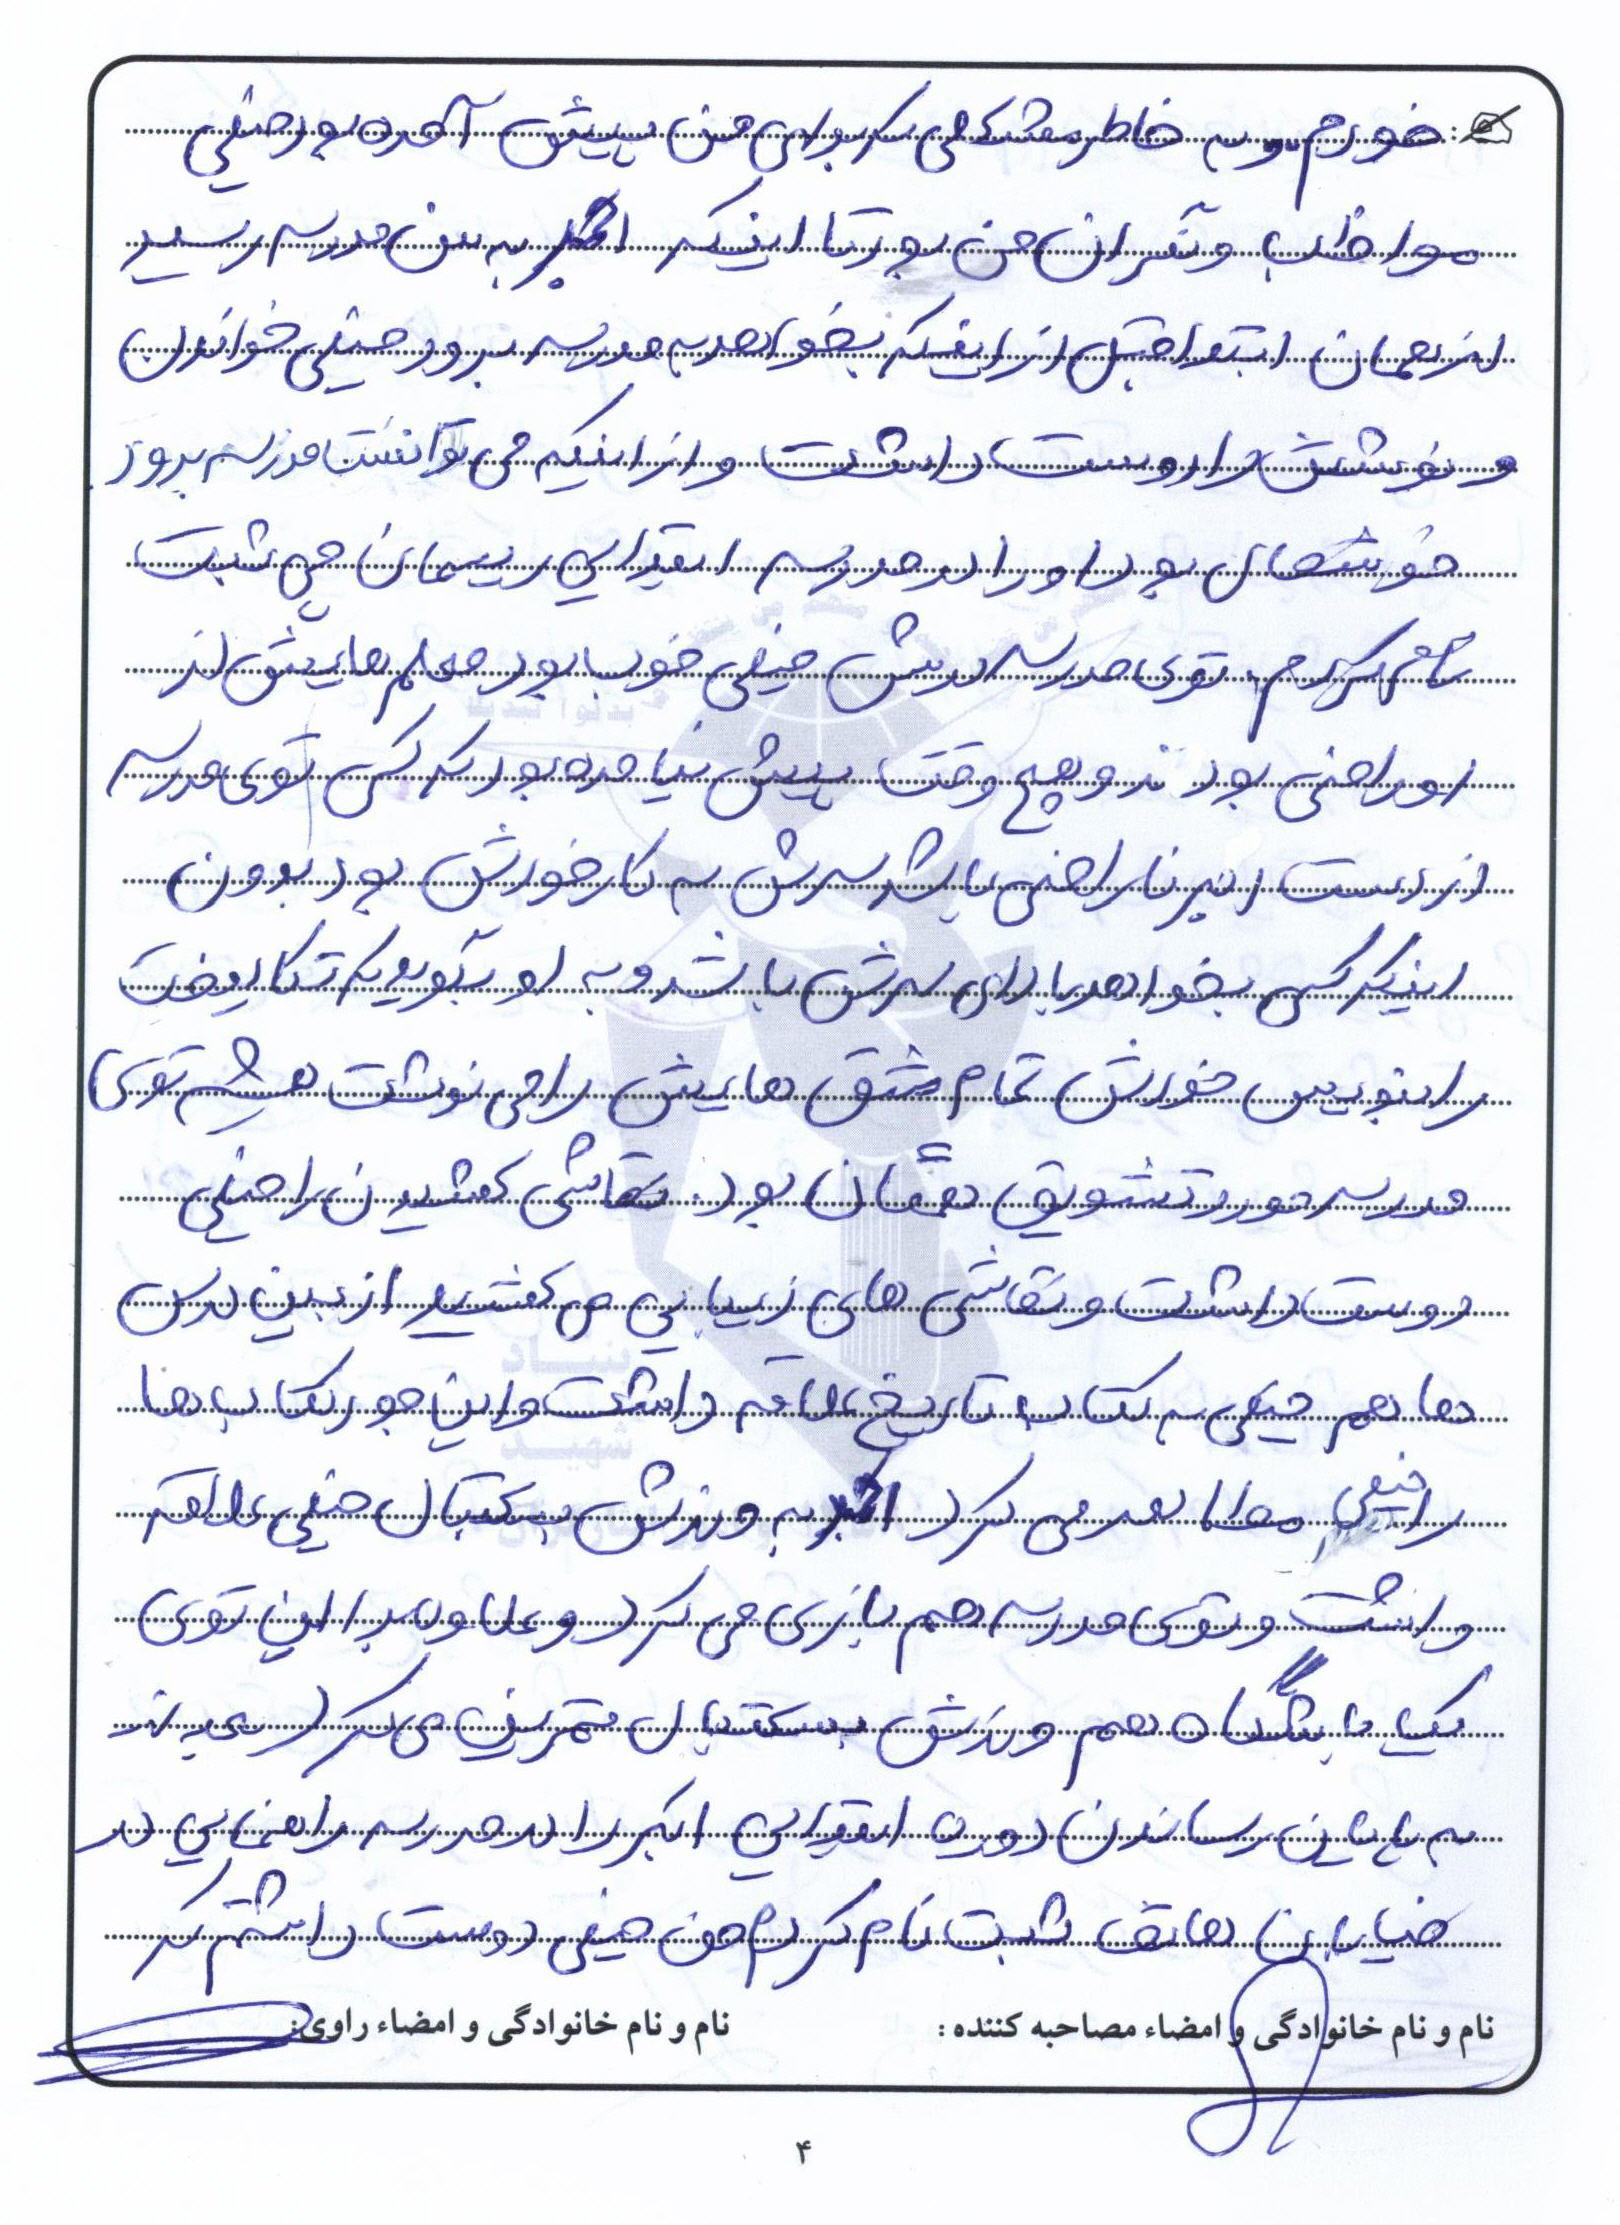 خودم و به خاطر مشکلی که برای من پیش آمده بود خیلی
مواظب و نگران من بود تا اینکه اکبر به سن مدرسه رسید
از همان ابتدا قبل از اینکه بخواهد به مدرسه برود خیلی خواندن
و نوشتن را دوست داشت و از اینکه می توانست مدرسه برود
خوشحال بود او را در مدرسه ابتدایی نریمان ثبت
نام کردم توی مدرسه درسش خیلی خوب بود معلم هایش از
او راضی بودند و هیچ وقت پیش نیامده بود که کسی توی مدرسه
از دست اکبر ناراضی باشد سرش به کار خودش بود بدون
اینکه کسی بخواهد بالای سرش باشد و به او بگوید که تکالیفت
را بنویس خودش تمام مشق هایش را می نوشت همیشه توی
مدرسه مورد تشویق همگان بود. نقاشی کشیدن را خیلی
دوست داشت و نقاشی های زیبایی می کشید از بین درس
ها هم خیلی به کتاب تاریخ علاقه داشت و این جور کتاب ها
را خیلی مطالعه می کرد اکبر به ورزش بسکتبال خیلی علاقه
داشت و توی مدرسه هم بازی می کرد و علاوه بر این توی
یک باشگاه هم ورزش بسکتبال تمرین می کرد بعد از
به پایان رساندن دوره ابتدایی اکبر را در مدرسه راهنمایی در
خیابان هاتف ثبت نام کردم من خیلی دوست داشتم که
نام و نام خانوادگی و امضاء مصاحبه کننده :
نام و نام خانوادگی و امضاء راوی:
۴
بنیاد
شهید